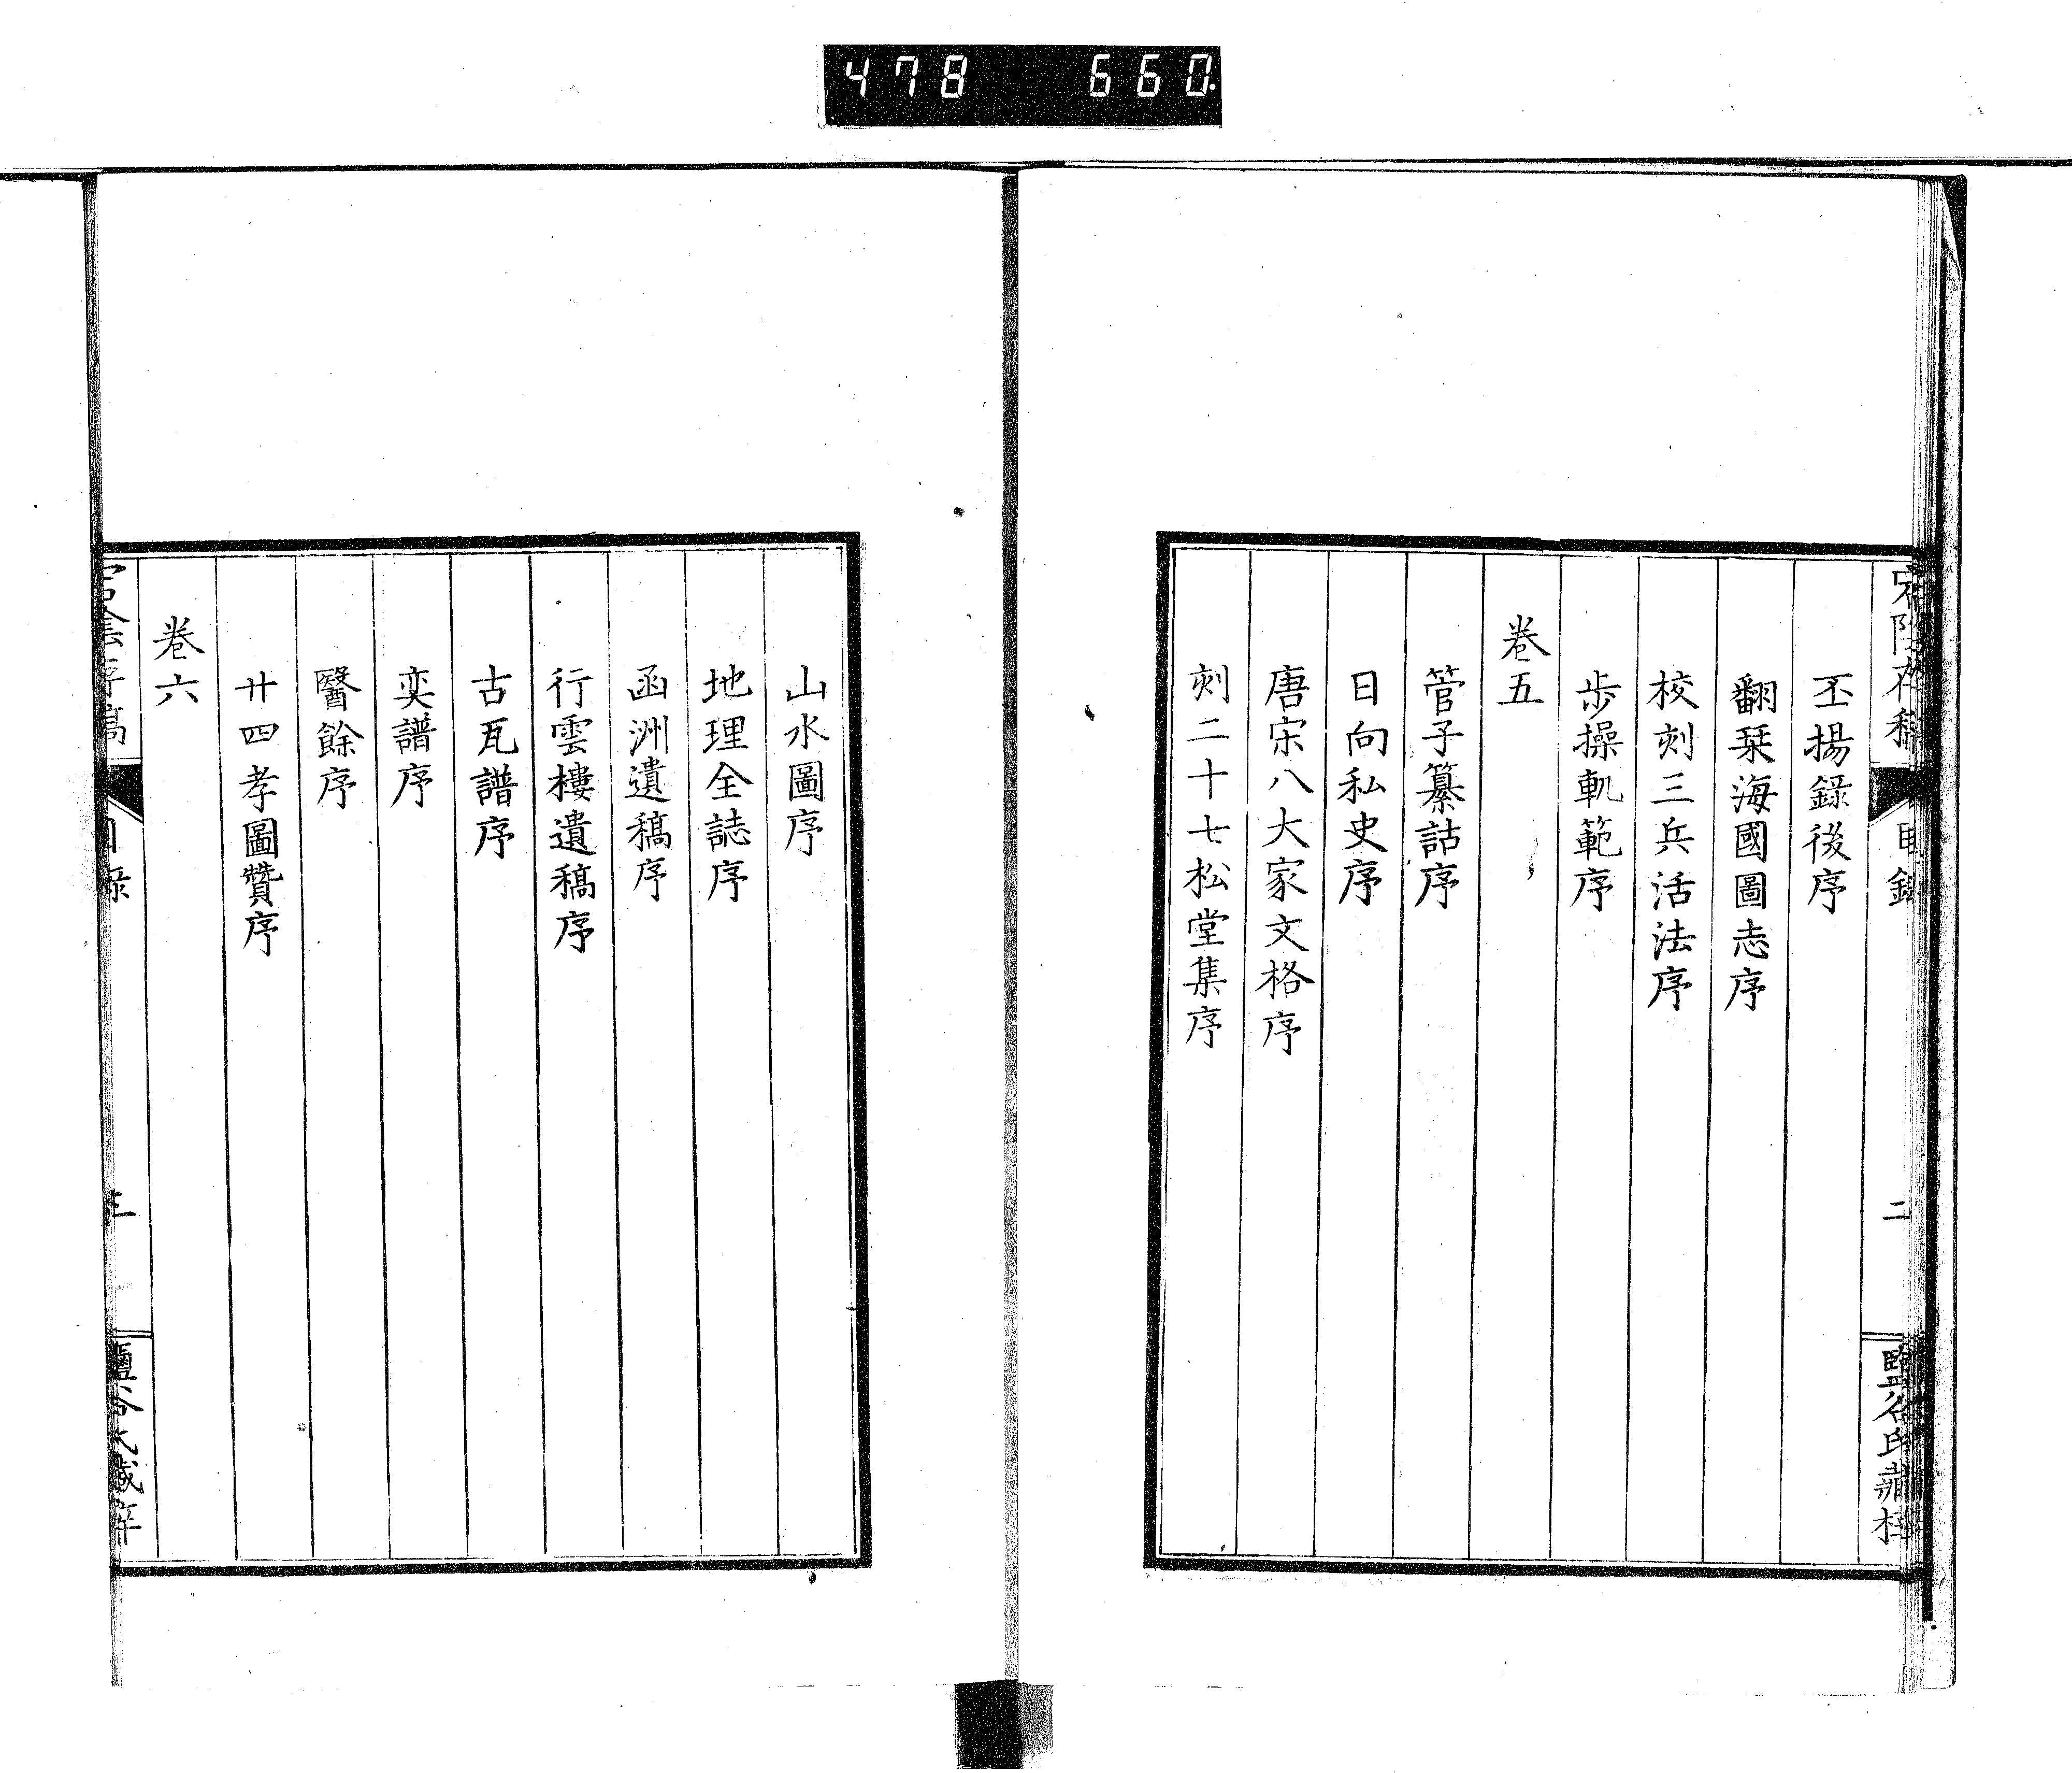 478 660
丕揚錄後序
翻栞海國圖志序
校刻三兵活法序
歩操軌範序
卷五
管子纂詁序
日向私史序
唐宋八大家文格序
刻二十七松堂集序
山水圖序
地理全誌序
函洲遺稿序
行雲樓遺稿序
古瓦譜序
奕譜序
醫餘序
廿四孝圖贊序
卷六